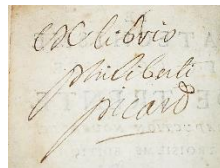 Ex libris
philiberti
picard